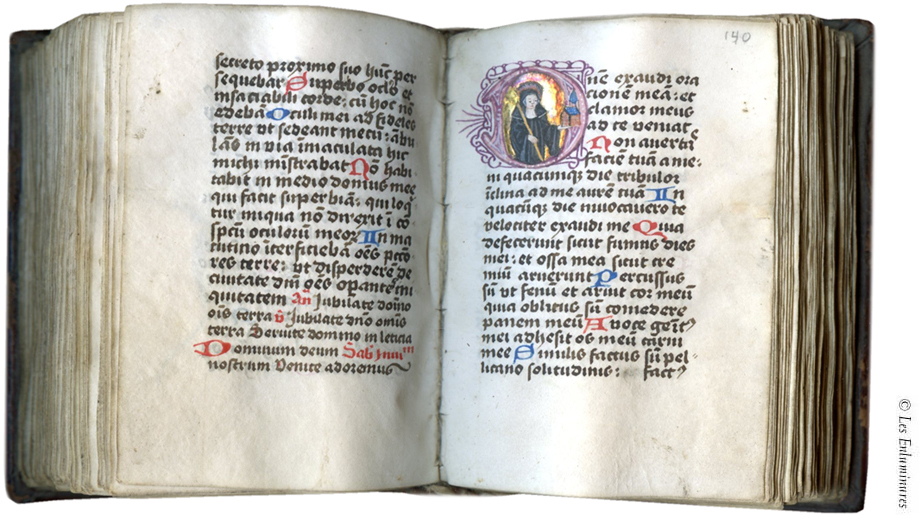 secreto proximo suo hūc per
sequebar Superbo oclo et
insaciabili corde: cū hoc nō
edebā Oculi mei ad fideles
terre vt sedeant mecū: ābu
lās in via īmaculata hic
michi mīstrabat Nō habi
tabit in medio domus mee
qui facit superbiā: qui loq̄
tur iniqua nō direxit ī cō
spcū oculorū meor In ma
tutino īterficiebā oēs pctō
res terre: vt disperderē de
ciuitate dnī oēs operantes ini
quitatem Añ Jubilate domino
ois terra ℣ Jubilate dn̄o omīs
terra Seruite domino in leticia
Dominum deum Sabb Inuit
nostrum Venite adoremus
140
Dn̄e exaudi ora
cionē meā: et
clamor meus
ad te veniat
Non auertā
faciē tuā a me:
in quacūmqȝ die tribulor
īclina ad me aurē tuā In
quacūqȝ die inuocauero te
velociter exaudi me Quia
defecerunt sicut fumus dies
mei: et ossa mea sicut cre
miū aruerunt Percussus
sū vt fenū et aruit cor meū
quia oblitus sū comedere
panem meū A voce gemitꝰ
mei adhesit os meū carni
mee Similis factus sū pel-
licano solitudinis: factꝰ
© Les Enluminures